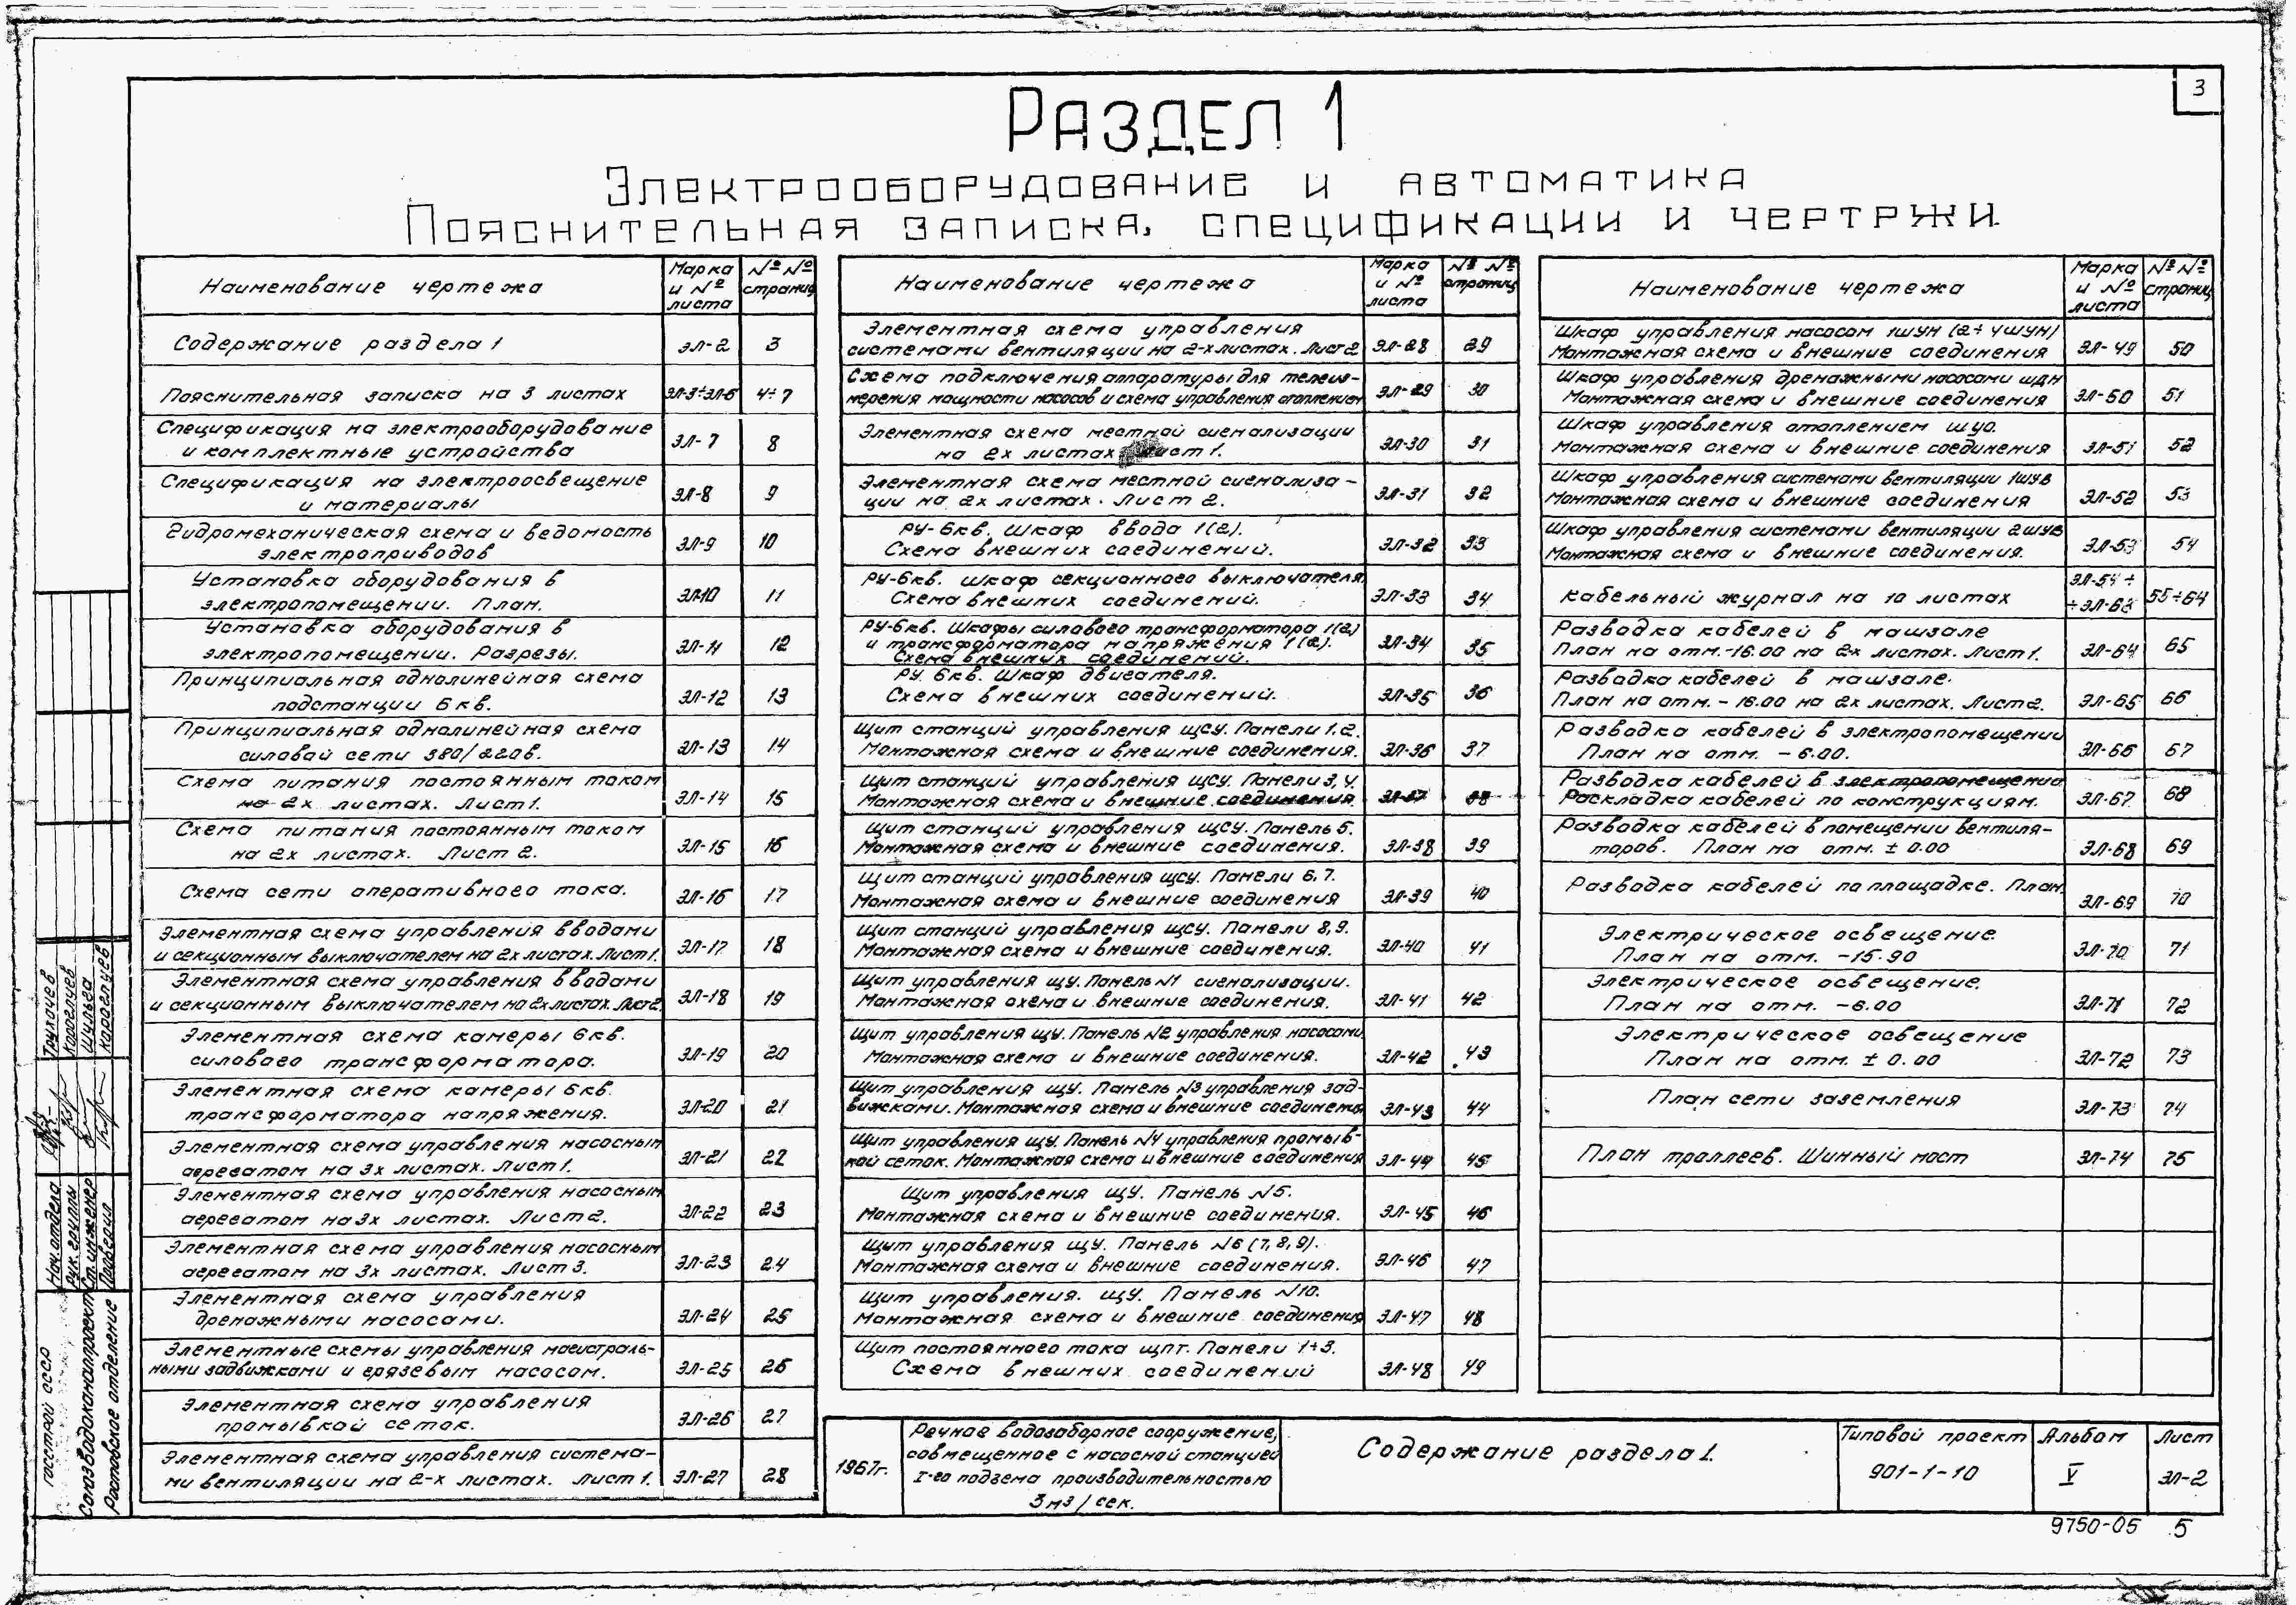 3
Раздел 1
Электрооборудование и автоматика
Пояснительная записка, спецификации и чертржи.
Наименование чертежа
Марка и № листа
№ № страниц
Содержание раздела 1 ЭЛ-2 3
Пояснительная записка на 3 листах ЭЛ-3÷ЭЛ-6 4÷7
Спецификация на электрооборудование
и комплектные устройства ЭЛ-7 8
Спецификация на электроосвещение
и материалы ЭЛ-8 9
Гидромеханическая схема и ведомость
электроприводов ЭЛ-9 10
Установка оборудования в
электропомещении. План. ЭЛ-10 11
Установка оборудования в
электропомещении. Разрезы. ЭЛ-11 12
Принципиальная однолинейная схема
подстанции 6кв. ЭЛ-12 13
Принципиальная однолинейная схема
силовой сети 380/220в. ЭЛ-13 14
Схема питания постоянным током
на 2х листах. Лист 1. ЭЛ-14 15
Схема питания постоянным током
на 2х листах. Лист 2. ЭЛ-15 16
Схема сети оперативного тока. ЭЛ-16 17
Элементная схема управления вводами
и секционным выключателем на 2х листах. Лист 1. ЭЛ-17 18
Элементная схема управления вводами
и секционным выключателем на 2х листах. Лист 2. ЭЛ-18 19
Элементная схема камеры 6кв.
силового трансформатора. ЭЛ-19 20
Элементная схема камеры 6кв.
трансформатора напряжения. ЭЛ-20 21
Элементная схема управления насосным
агрегатом на 3х листах. Лист 1. ЭЛ-21 22
Элементная схема управления насосным
агрегатом на 3х листах. Лист 2. ЭЛ-22 23
Элементная схема управления насосным
агрегатом на 3х листах. Лист 3. ЭЛ-23 24
Элементная схема управления
дренажными насосами. ЭЛ-24 25
Элементные схемы управления магистраль-
ными задвижками и грязевым насосом. ЭЛ-25 26
Элементная схема управления
промывкой сеток. ЭЛ-26 27
Элементная схема управления система-
ми вентиляции на 2-х листах. Лист 1. ЭЛ-27 28
Наименование чертежа
Марка и № листа
№ № страниц
Элементная схема управления
системами вентиляции на 2-х листах. Лист 2 ЭЛ-28 29
Схема подключения аппаратуры для телеиз-
мерения мощности насосов и схема управления отоплением ЭЛ-29 30
Элементная схема местной сигнализации
на 2х листах Лист 1. ЭЛ-30 31
Элементная схема местной сигнализа-
ции на 2х листах. Лист 2. ЭЛ-31 32
РУ-6кв. Шкаф ввода 1(2).
Схема внешних соединений. ЭЛ-32 33
РУ-6кв. Шкаф секционного выключателя.
Схема внешних соединений. ЭЛ-33 34
РУ-6кв. Шкафы силового трансформатора 1(2)
и трансформатора напряжения 1(2).
Схема внешних соединений. ЭЛ-34 35
РУ. 6кв. Шкаф двигателя.
Схема внешних соединений. ЭЛ-35 36
Щит станций управления ЩСУ. Панели 1,2.
Монтажная схема и внешние соединения. ЭЛ-36 37
Щит станций управления ЩСУ. Панели 3,4.
Монтажная схема и внешние соединения ЭЛ-37 38
Щит станций управления ЩСУ. Панель 5.
Монтажная схема и внешние соединения. ЭЛ-38 39
Щит станций управления ЩСУ. Панели 6,7.
Монтажная схема и внешние соединения ЭЛ-39 40
Щит станций управления ЩСУ. Панели 8,9.
Монтажная схема и внешние соединения. ЭЛ-40 41
Щит управления ЩУ. Панель №1 сигнализации.
Монтажная схема и внешние соединения. ЭЛ-41 42
Щит управления ЩУ. Панель №2 управления насосами.
Монтажная схема и внешние соединения. ЭЛ-42 43
Щит управления ЩУ. Панель №3 управления зад-
вижками. Монтажная схема и внешние соединения ЭЛ-43 44
Щит управления ЩУ. Панель №4 управления промыв-
кой сеток. Монтажная схема и внешние соединения ЭЛ-44 45
Щит управления ЩУ. Панель №5.
Монтажная схема и внешние соединения. ЭЛ-45 46
Щит управления ЩУ. Панель №6 (7,8,9).
Монтажная схема и внешние соединения. ЭЛ-46 47
Щит управления. ЩУ. Панель №10.
Монтажная схема и внешние соединения ЭЛ-47 48
Щит постоянного тока ЩПТ. Панели 1÷3.
Схема внешних соединений ЭЛ-48 49
Наименование чертежа
Марка и № листа
№ № страниц
Шкаф управления насосом 1ШУН (2÷4ШУН)
Монтажная схема и внешние соединения ЭЛ-49 50
Шкаф управления дренажными насосами ШДН
Монтажная схема и внешние соединения ЭЛ-50 51
Шкаф управления отоплением ШУО.
Монтажная схема и внешние соединения ЭЛ-51 52
Шкаф управления системами вентиляции 1ШУВ
Монтажная схема и внешние соединения ЭЛ-52 53
Шкаф управления системами вентиляции 2ШУВ
Монтажная схема и внешние соединения. ЭЛ-53 54
Кабельный журнал на 10 листах ЭЛ-54÷÷ЭЛ-63 55÷64
Разводка кабелей в машзале
План на отм.-16.00 на 2х листах. Лист 1. ЭЛ-64 65
Разводка кабелей в машзале.
План на отм. - 16.00 на 2х листах. Лист 2. ЭЛ-65 66
Разводка кабелей в электропомещении
План на отм. - 6.00. ЭЛ-66 67
Разводка кабелей в электропомещении
Раскладка кабелей по конструкциям. ЭЛ-67 68
Разводка кабелей в помещении вентиля-
торов. План на отм. ± 0.00 ЭЛ-68 69
Разводка кабелей по площадке. План. ЭЛ-69 70
Электрическое освещение.
План на отм. -15.90 ЭЛ-70 71
Электрическое освещение.
План на отм. -6.00 ЭЛ-71 72
Электрическое освещение
План на отм. ± 0.00 ЭЛ-72 73
План сети заземления ЭЛ-73 74
План троллеев. Шинный мост ЭЛ-74 75
Госстрой СССР
Союзводоканалпроект
Ростовское отделение
Нач. отдела Трухачев
Рук. группы Карагуев
Ст. инженер Шульга
Проверил
1967г.
Речное водозаборное сооружение,
совмещенное с насосной станцией
I-го подъема производительностью
3 м3/сек.
Содержание раздела 1.
Типовой проект
901-1-10
Альбом
V
Лист
ЭЛ-2
9750-05 5